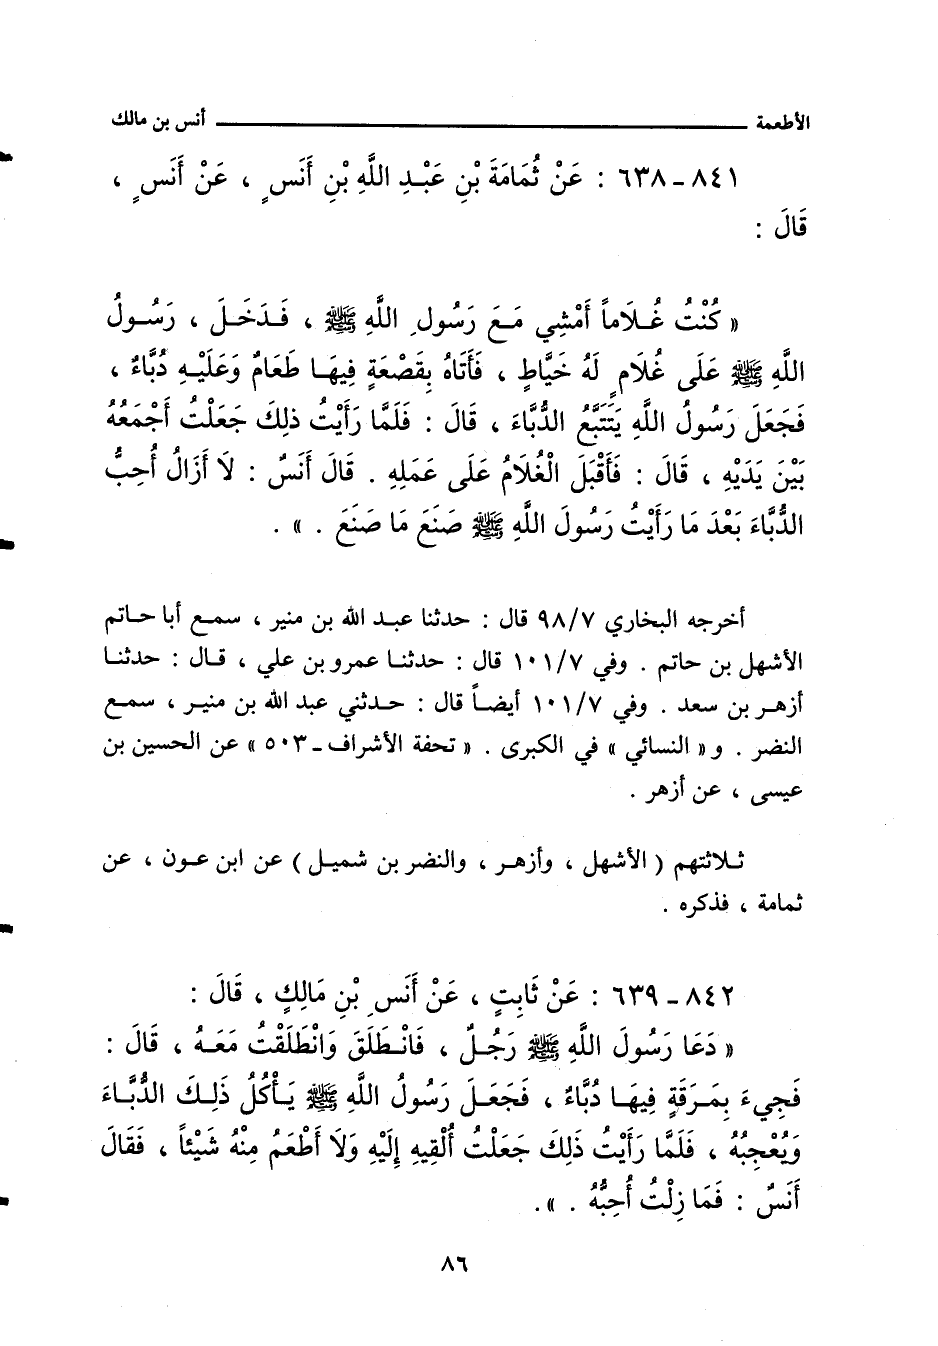 الأطعمة ـــــــــــــــــــــ أنس بن مالك
٨٤١ - ٦٣٨ : عَنْ ثُمَامَةَ بْنِ عَبْدِ اللَّهِ بْنِ أَنَسٍ ، عَنْ أَنَسٍ ،
قَالَ :
« كُنْتُ غُلَاماً أَمْشِي مَعَ رَسُولِ اللَّهِ ﷺ ، فَدَخَلَ ، رَسُولُ
اللَّهِ ﷺ عَلَى غُلَامٍ لَهُ خَيَّاطٍ ، فَأَتَاهُ بِقَصْعَةٍ فِيهَا طَعَامٌ وَعَلَيْهِ دُبَّاءٌ ،
فَجَعَلَ رَسُولُ اللَّهِ يَتَتَبَّعُ الدُّبَّاءَ ، قَالَ : فَلَمَّا رَأَيْتُ ذلِكَ جَعَلْتُ أَجْمَعُهُ
بَيْنَ يَدَيْهِ ، قَالَ : فَأَقْبَلَ الْغُلَامُ عَلَى عَمَلِهِ . قَالَ أَنَسٌ : لَا أَزَالُ أُحِبُّ
الدُّبَّاءَ بَعْدَ مَا رَأَيْتُ رَسُولَ اللَّهِ ﷺ صَنَعَ مَا صَنَعَ . » .
أخرجه البخاري ٩٨/٧ قال : حدثنا عبد الله بن منير ، سمع أبا حاتم
الأشهل بن حاتم . وفي ١٠١/٧ قال : حدثنا عمرو بن علي ، قال : حدثنا
أزهر بن سعد . وفي ١٠١/٧ أيضاً قال : حدثني عبد الله بن منير ، سمع
النضر . و« النسائي » في الكبرى . « تحفة الأشراف - ٥٠٣ » عن الحسين بن
عيسى ، عن أزهر .
ثلاثتهم ( الأشهل ، وأزهر ، والنضر بن شميل ) عن ابن عون ، عن
ثمامة ، فذكره .
٨٤٢ - ٦٣٩ : عَنْ ثَابِتٍ ، عَنْ أَنَسِ بْنِ مَالِكٍ ، قَالَ :
« دَعَا رَسُولَ اللَّهِ ﷺ رَجُلٌ ، فَانْطَلَقَ وَانْطَلَقْتُ مَعَهُ ، قَالَ :
فَجِيءَ بِمَرَقَةٍ فِيهَا دُبَّاءٌ ، فَجَعَلَ رَسُولُ اللَّهِ ﷺ يَأْكُلُ ذَلِكَ الدُّبَّاءَ
وَيُعْجِبُهُ ، فَلَمَّا رَأَيْتُ ذَلِكَ جَعَلْتُ أُلْقِيهِ إِلَيْهِ وَلَا أَطْعَمُ مِنْهُ شَيْئاً ، فَقَالَ
أَنَسٌ : فَمَا زِلْتُ أُحِبُّهُ . » .
٨٦